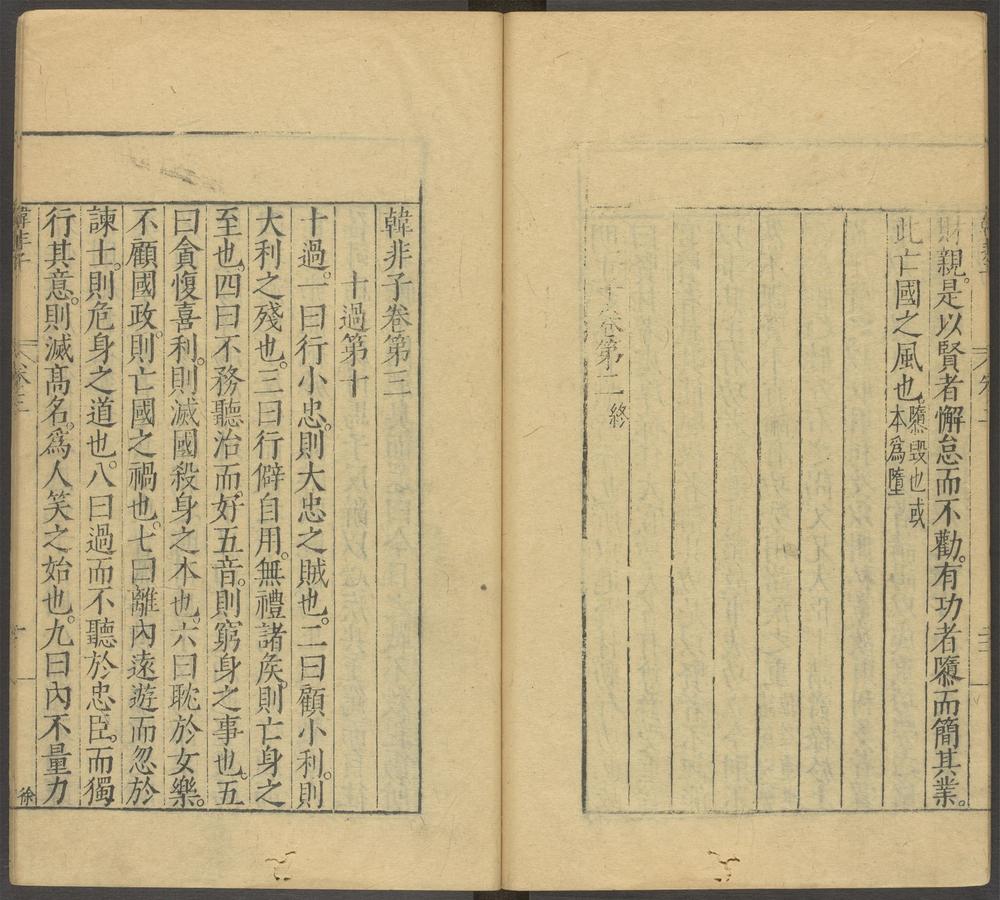 財親。是以賢者懈怠而不勸。有功者隳而簡其業。
此亡國之風也。隳毀也或
本為墮
卷第二 終
韓非子卷第三
十過第十
十過。一曰行小忠。則大忠之賊也。二曰顧小利。則
大利之殘也。三曰行僻自用。無禮諸矦。則亡身之
至也。四曰不務聽治而好五音。則窮身之事也。五
曰貪愎喜利。則滅國殺身之本也。六曰耽於女樂。
不顧國政。則亡國之禍也。七曰離內遠遊而忽於
諫士。則危身之道也。八曰過而不聽於忠臣。而獨
行其意。則滅髙名。爲人笑之始也。九曰內不量力
韓非子 卷三
徐